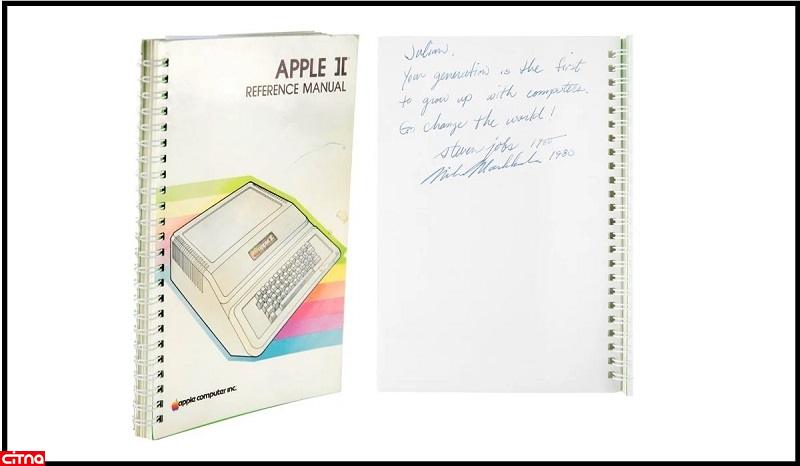 APPLE ][
REFERENCE MANUAL
apple computer inc.
Julian,
Your generation is the first
to grow up with computers.
Go change the world!
steven jobs 1980
Mike Markkula 1980
CITNA